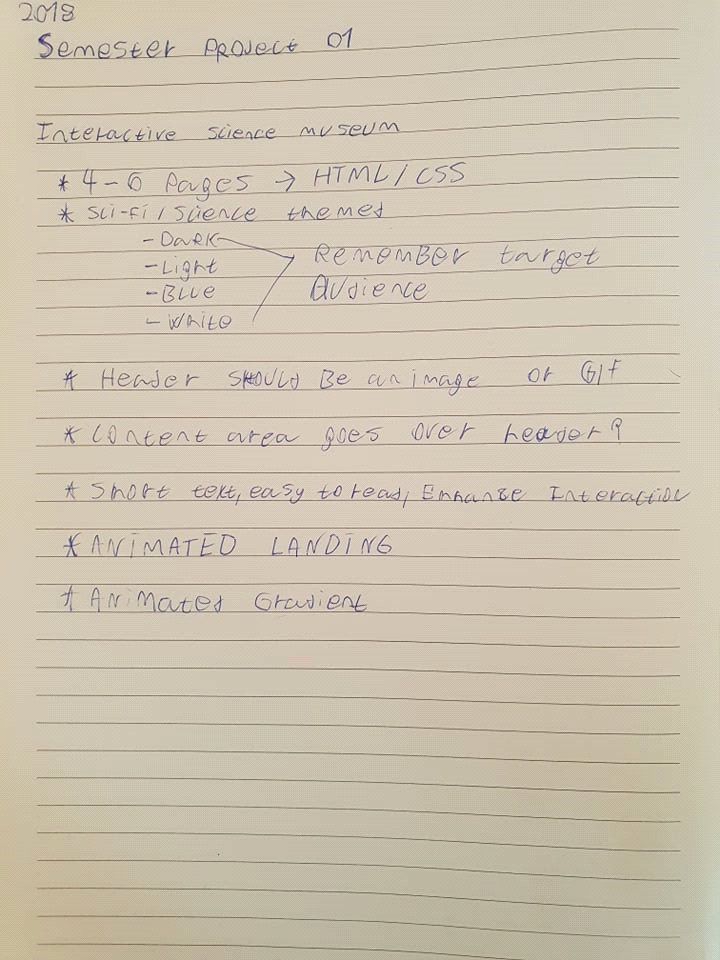 2018
Semester Project 01
Interactive science museum
* 4-6 Pages → HTML/CSS
* Sci-Fi / Science themes
- Dark
- Light
- Blue
- White
Remember target
Audience
* Header SHOULD Be an image or GIF
* Content area goes over header?
* Short text, easy to read, Enhance Interaction
* ANIMATED LANDING
* Animated Gradient